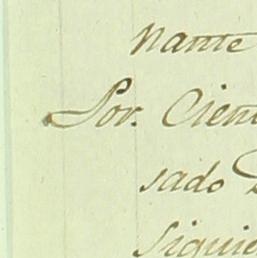 nante
Por. Cient
sado
siguie